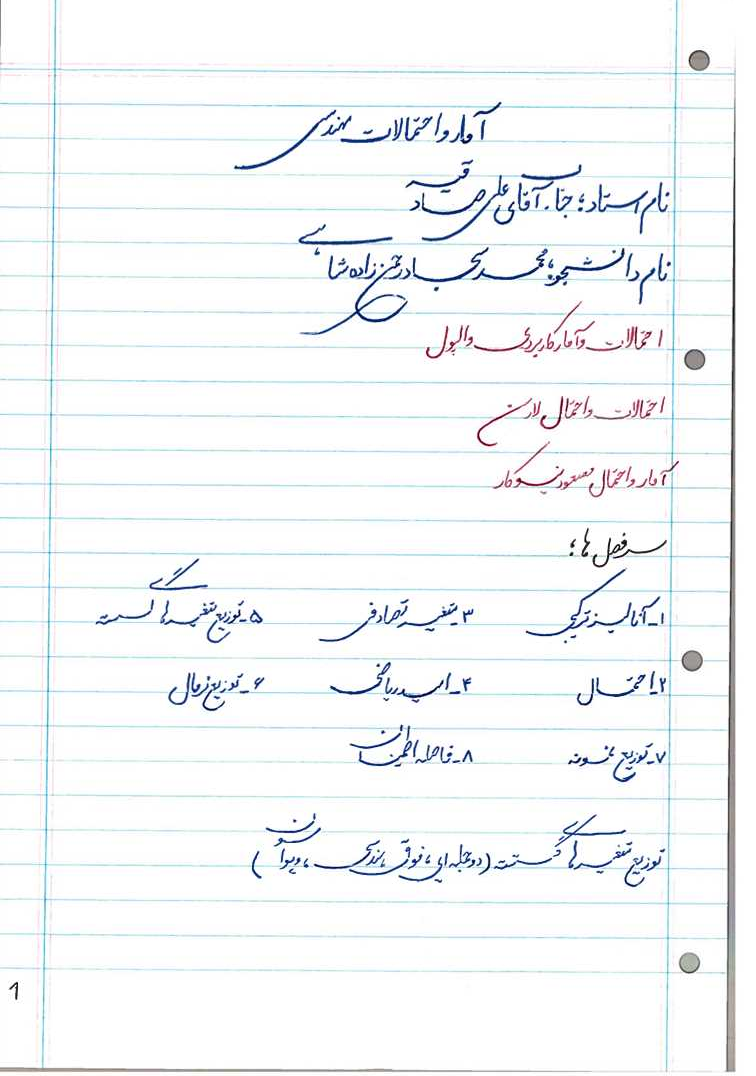 آمار و احتمالات مهندسی
نام استاد: جناب آقای علی صادقیه
نام دانشجو: محمد سجاد رحمن زاده شاهی
احتمالات و آمار کاربردی والپول
احتمالات و احتمال لارسن
آمار و احتمال مسعود نیکوکار
سرفصل ها:
۱_ آنالیز ترکیبی ۳_ متغیر تصادفی ۵_ توزیع متغیرهای گسسته
۲_ احتمال ۴_ امید ریاضی ۶_ توزیع نرمال
۷_ توزیع نمونه ۸_ فاصله اطمینان
توزیع متغیرهای گسسته (دوجمله ای، فوق هندسی، و پواسون)
1